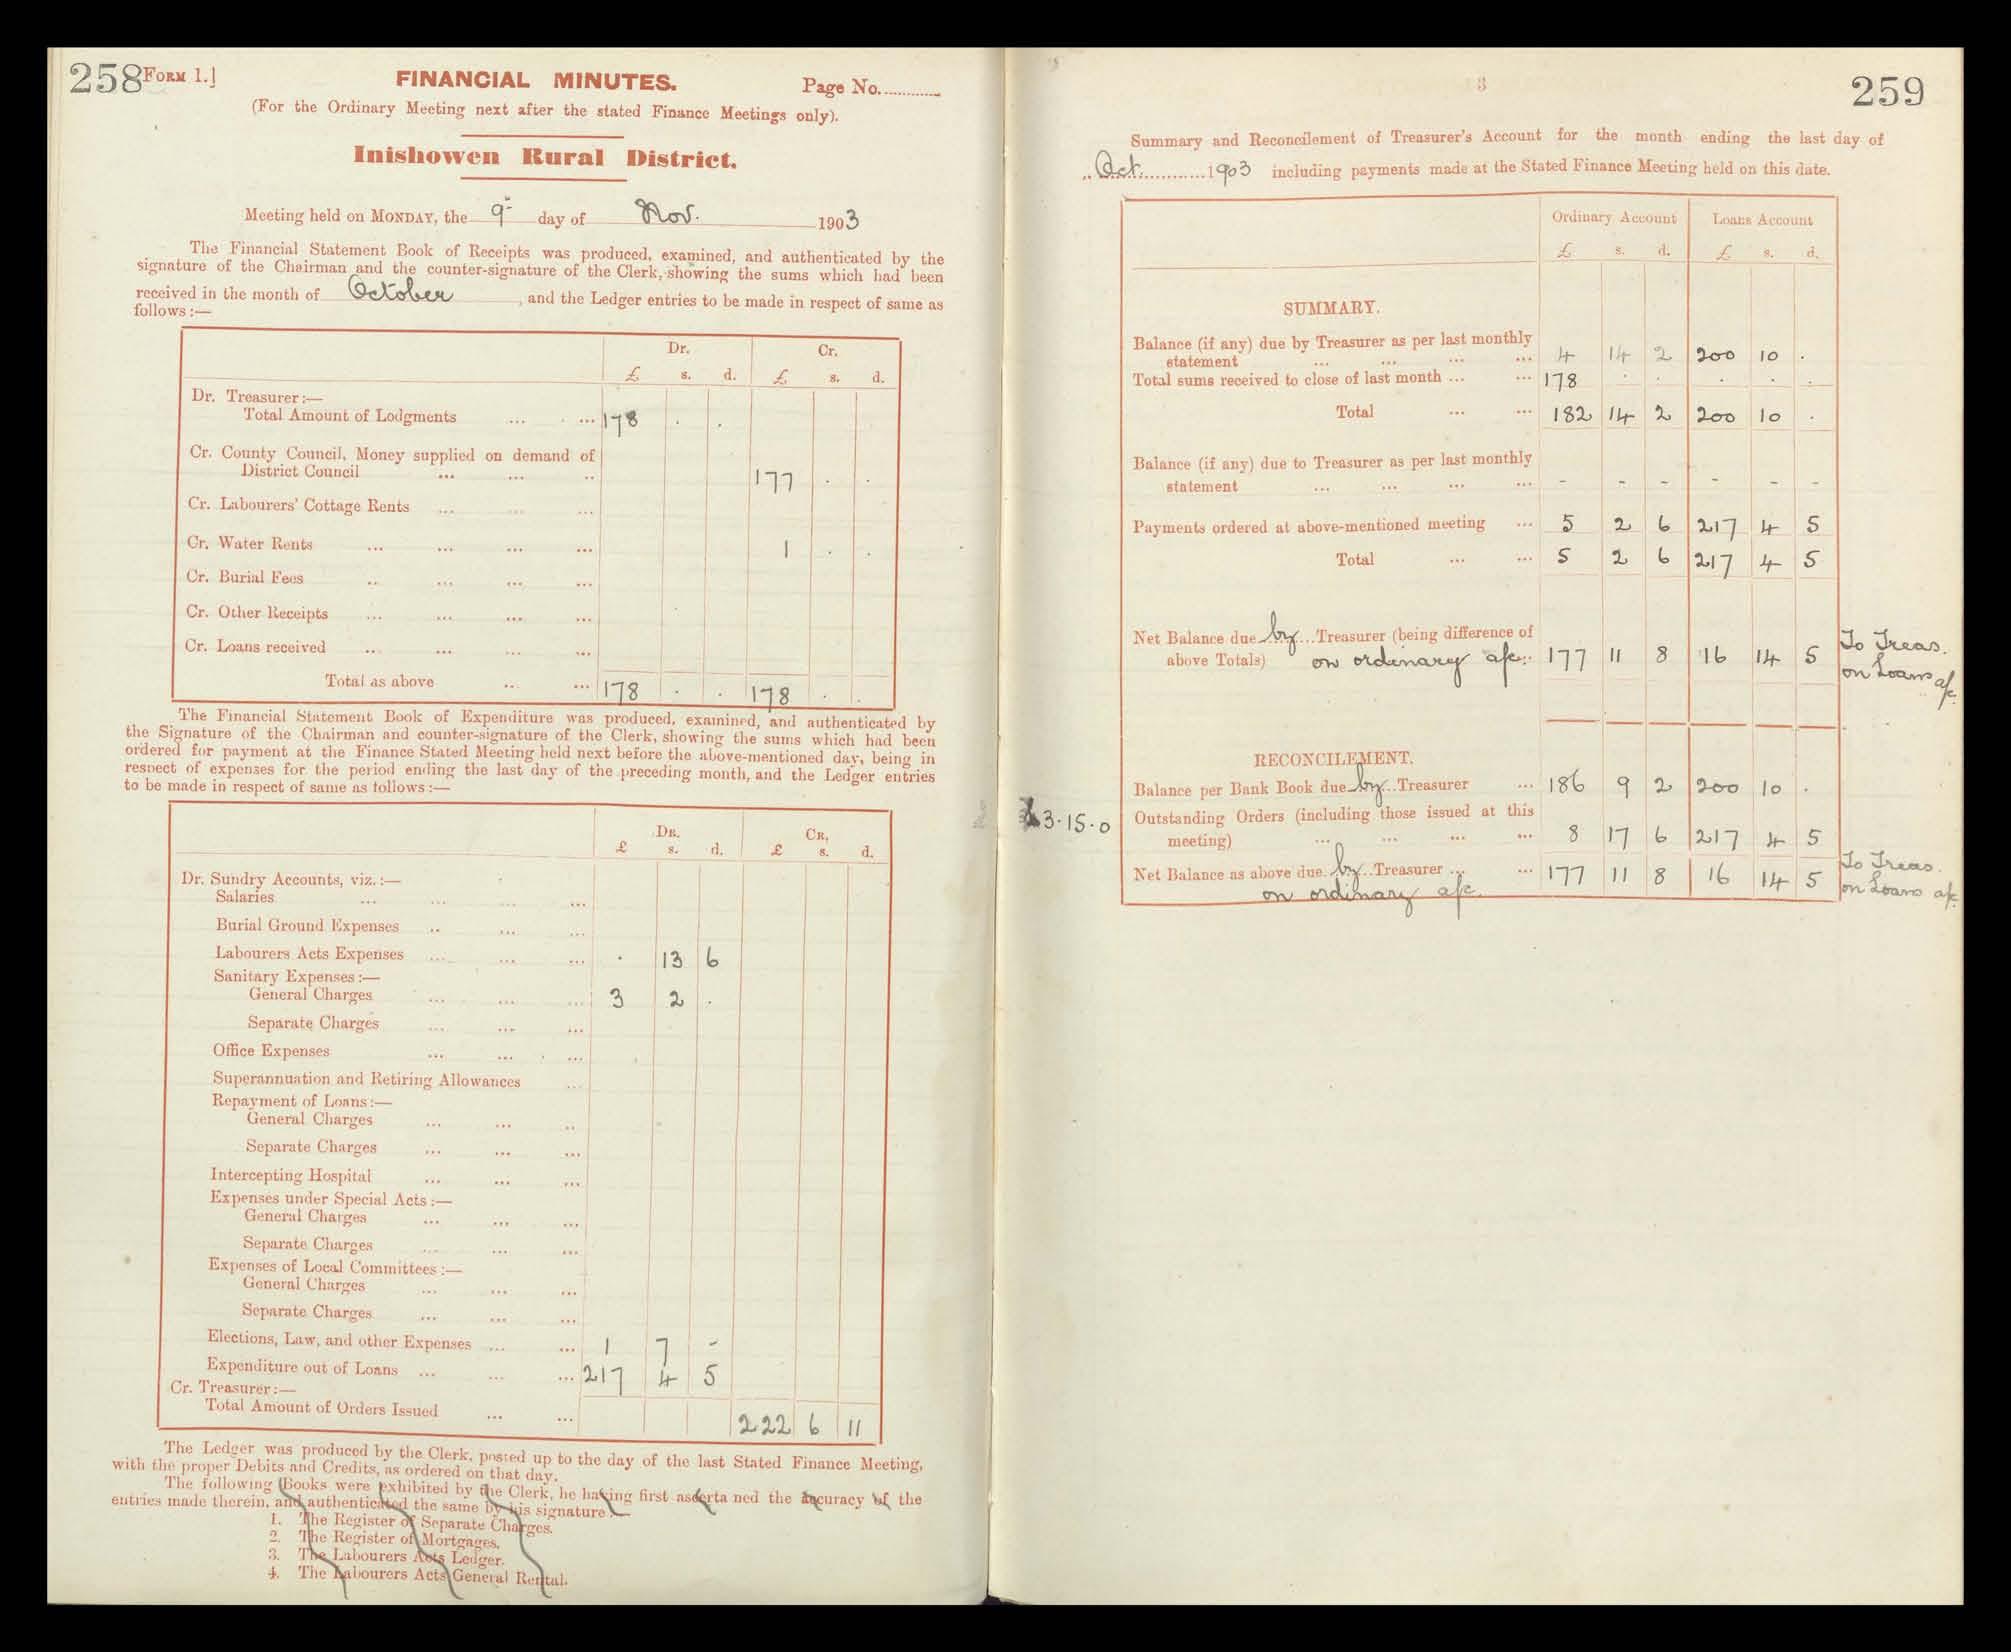 258 FORM 1.]
FINANCIAL MINUTES.
Page No.............
(For the Ordinary Meeting next after the stated Finance Meetings only).
Inishowen Rural District.
Meeting held on MONDAY, the 9th day of Nov. 1903
The Financial Statement Book of Receipts was produced, examined, and authenticated by the
signature of the Chairman and the counter-signature of the Clerk, showing the sums which had been
received in the month of October, and the Ledger entries to be made in respect of same as
follows :—
Dr. Cr.
£ s. d. £ s. d.
Dr. Treasurer :—
Total Amount of Lodgments ... ... 178 . .
Cr. County Council, Money supplied on demand of
District Council ... ... .. 177 . .
Cr. Labourers' Cottage Rents ... ... ...
Cr. Water Rents ... ... ... ... 1 . .
Cr. Burial Fees .. ... ... ...
Cr. Other Receipts ... ... ... ...
Cr. Loans received ... ... ... ...
Total as above ... ... 178 . . 178 . .
The Financial Statement Book of Expenditure was produced, examined, and authenticated by
the Signature of the Chairman and counter-signature of the Clerk, showing the sums which had been
ordered for payment at the Finance Stated Meeting held next before the above-mentioned day, being in
respect of expenses for the period ending the last day of the preceding month, and the Ledger entries
to be made in respect of same as follows :—
DR. CR,
£ s. d. £ s. d.
Dr. Sundry Accounts, viz. :—
Salaries ... ... ... ...
Burial Ground Expenses .. ... ...
Labourers Acts Expenses ... ... ... . 13 6
Sanitary Expenses :—
General Charges ... ... ... 3 2 .
Separate Charges ... ... ...
Office Expenses ... ... ...
Superannuation and Retiring Allowances ...
Repayment of Loans :—
General Charges ... ... ..
Separate Charges ... ... ...
Intercepting Hospital ... ... ...
Expenses under Special Acts :—
General Charges ... ... ...
Separate Charges ... ... ...
Expenses of Local Committees :—
General Charges ... ... ...
Separate Charges ... ... ...
Elections, Law, and other Expenses ... ... 1 7 -
Expenditure out of Loans ... ... ... 217 4 5
Cr. Treasurer :—
Total Amount of Orders Issued ... ... 222 6 11
The Ledger was produced by the Clerk, posted up to the day of the last Stated Finance Meeting,
with the proper Debits and Credits, as ordered on that day.
The following Books were exhibited by the Clerk, he having first ascerta ned the accuracy of the
entries made therein, and authenticated the same by his signature :—
1. The Register of Separate Charges.
2. The Register of Mortgages.
3. The Labourers Acts Ledger.
4. The Labourers Acts General Rental.
3
259
Summary and Reconcilement of Treasurer's Account for the month ending the last day of
Oct. 1903 including payments made at the Stated Finance Meeting held on this date.
Ordinary Account Loans Account
£ s. d. £ s. d.
SUMMARY.
Balance (if any) due by Treasurer as per last monthly
statement ... ... ... ... 4 14 2 200 10 .
Total sums received to close of last month ... ... 178 . . . . .
Total ... ... 182 14 2 200 10 .
Balance (if any) due to Treasurer as per last monthly
statement ... ... ... ... - - - - - -
Payments ordered at above-mentioned meeting ... 5 2 6 217 4 5
Total ... ... 5 2 6 217 4 5
Net Balance due by Treasurer (being difference of
above Totals) on ordinary a/c 177 11 8 16 14 5 To Treas.
on Loans a/c.
RECONCILEMENT.
Balance per Bank Book due by Treasurer ... 186 9 2 200 10 .
£3.15.0 Outstanding Orders (including those issued at this
meeting) ... ... ... ... 8 17 6 217 4 5
Net Balance as above due by Treasurer ... ... 177 11 8 16 14 5 To Treas.
on ordinary a/c. on Loans a/c.